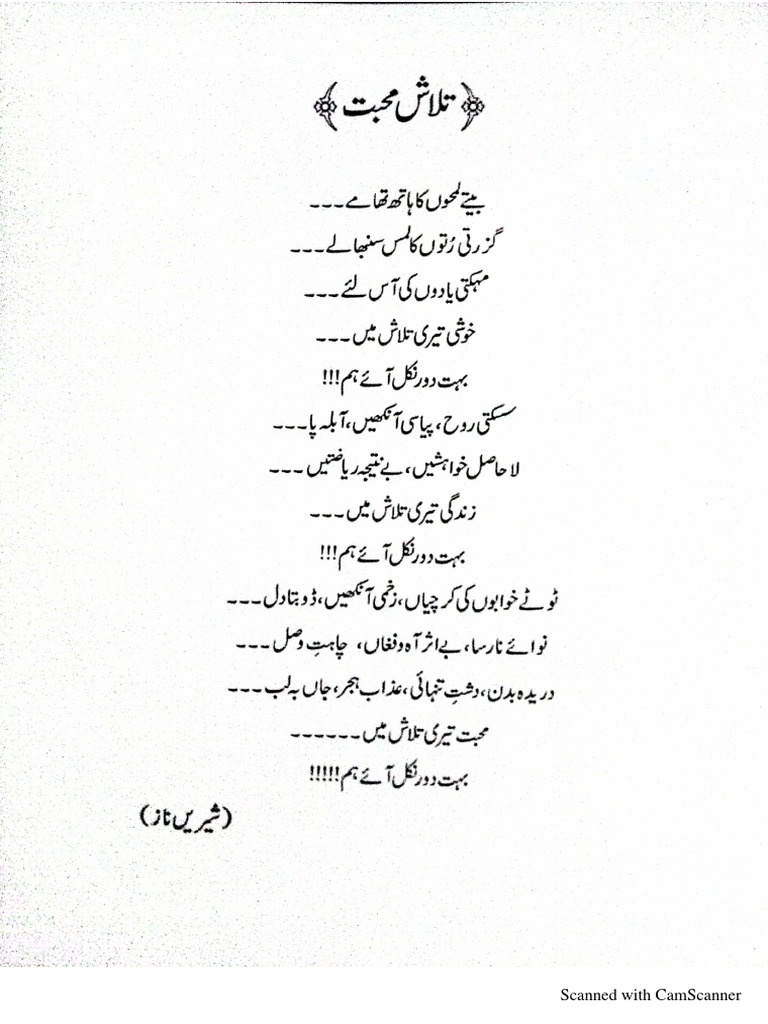 ﴿تلاش محبت﴾
بیتے لمحوں کا ہاتھ تھامے۔۔۔
گزرتی رُتوں کا لمس سنبھالے۔۔۔
مہکتی یادوں کی آس لئے۔۔۔
خوشی تیری تلاش میں۔۔۔
بہت دور نکل آئے ہم!!!
سسکتی روح، پیاسی آنکھیں، آبلہ پا۔۔۔
لا حاصل خواہشیں، بے نتیجہ ریاضتیں۔۔۔
زندگی تیری تلاش میں۔۔۔
بہت دور نکل آئے ہم!!!
ٹوٹے خوابوں کی کرچیاں، زخمی آنکھیں، ڈوبتا دل۔۔۔
نوائے نارسا، بے اثر آہ و فغاں، چاہتِ وصل۔۔۔
دریدہ بدن، دشتِ تنہائی، عذاب ہجر، جاں بہ لب۔۔۔
محبت تیری تلاش میں۔۔۔۔۔۔
بہت دور نکل آئے ہم!!!!!
(شیریں ناز)
Scanned with CamScanner